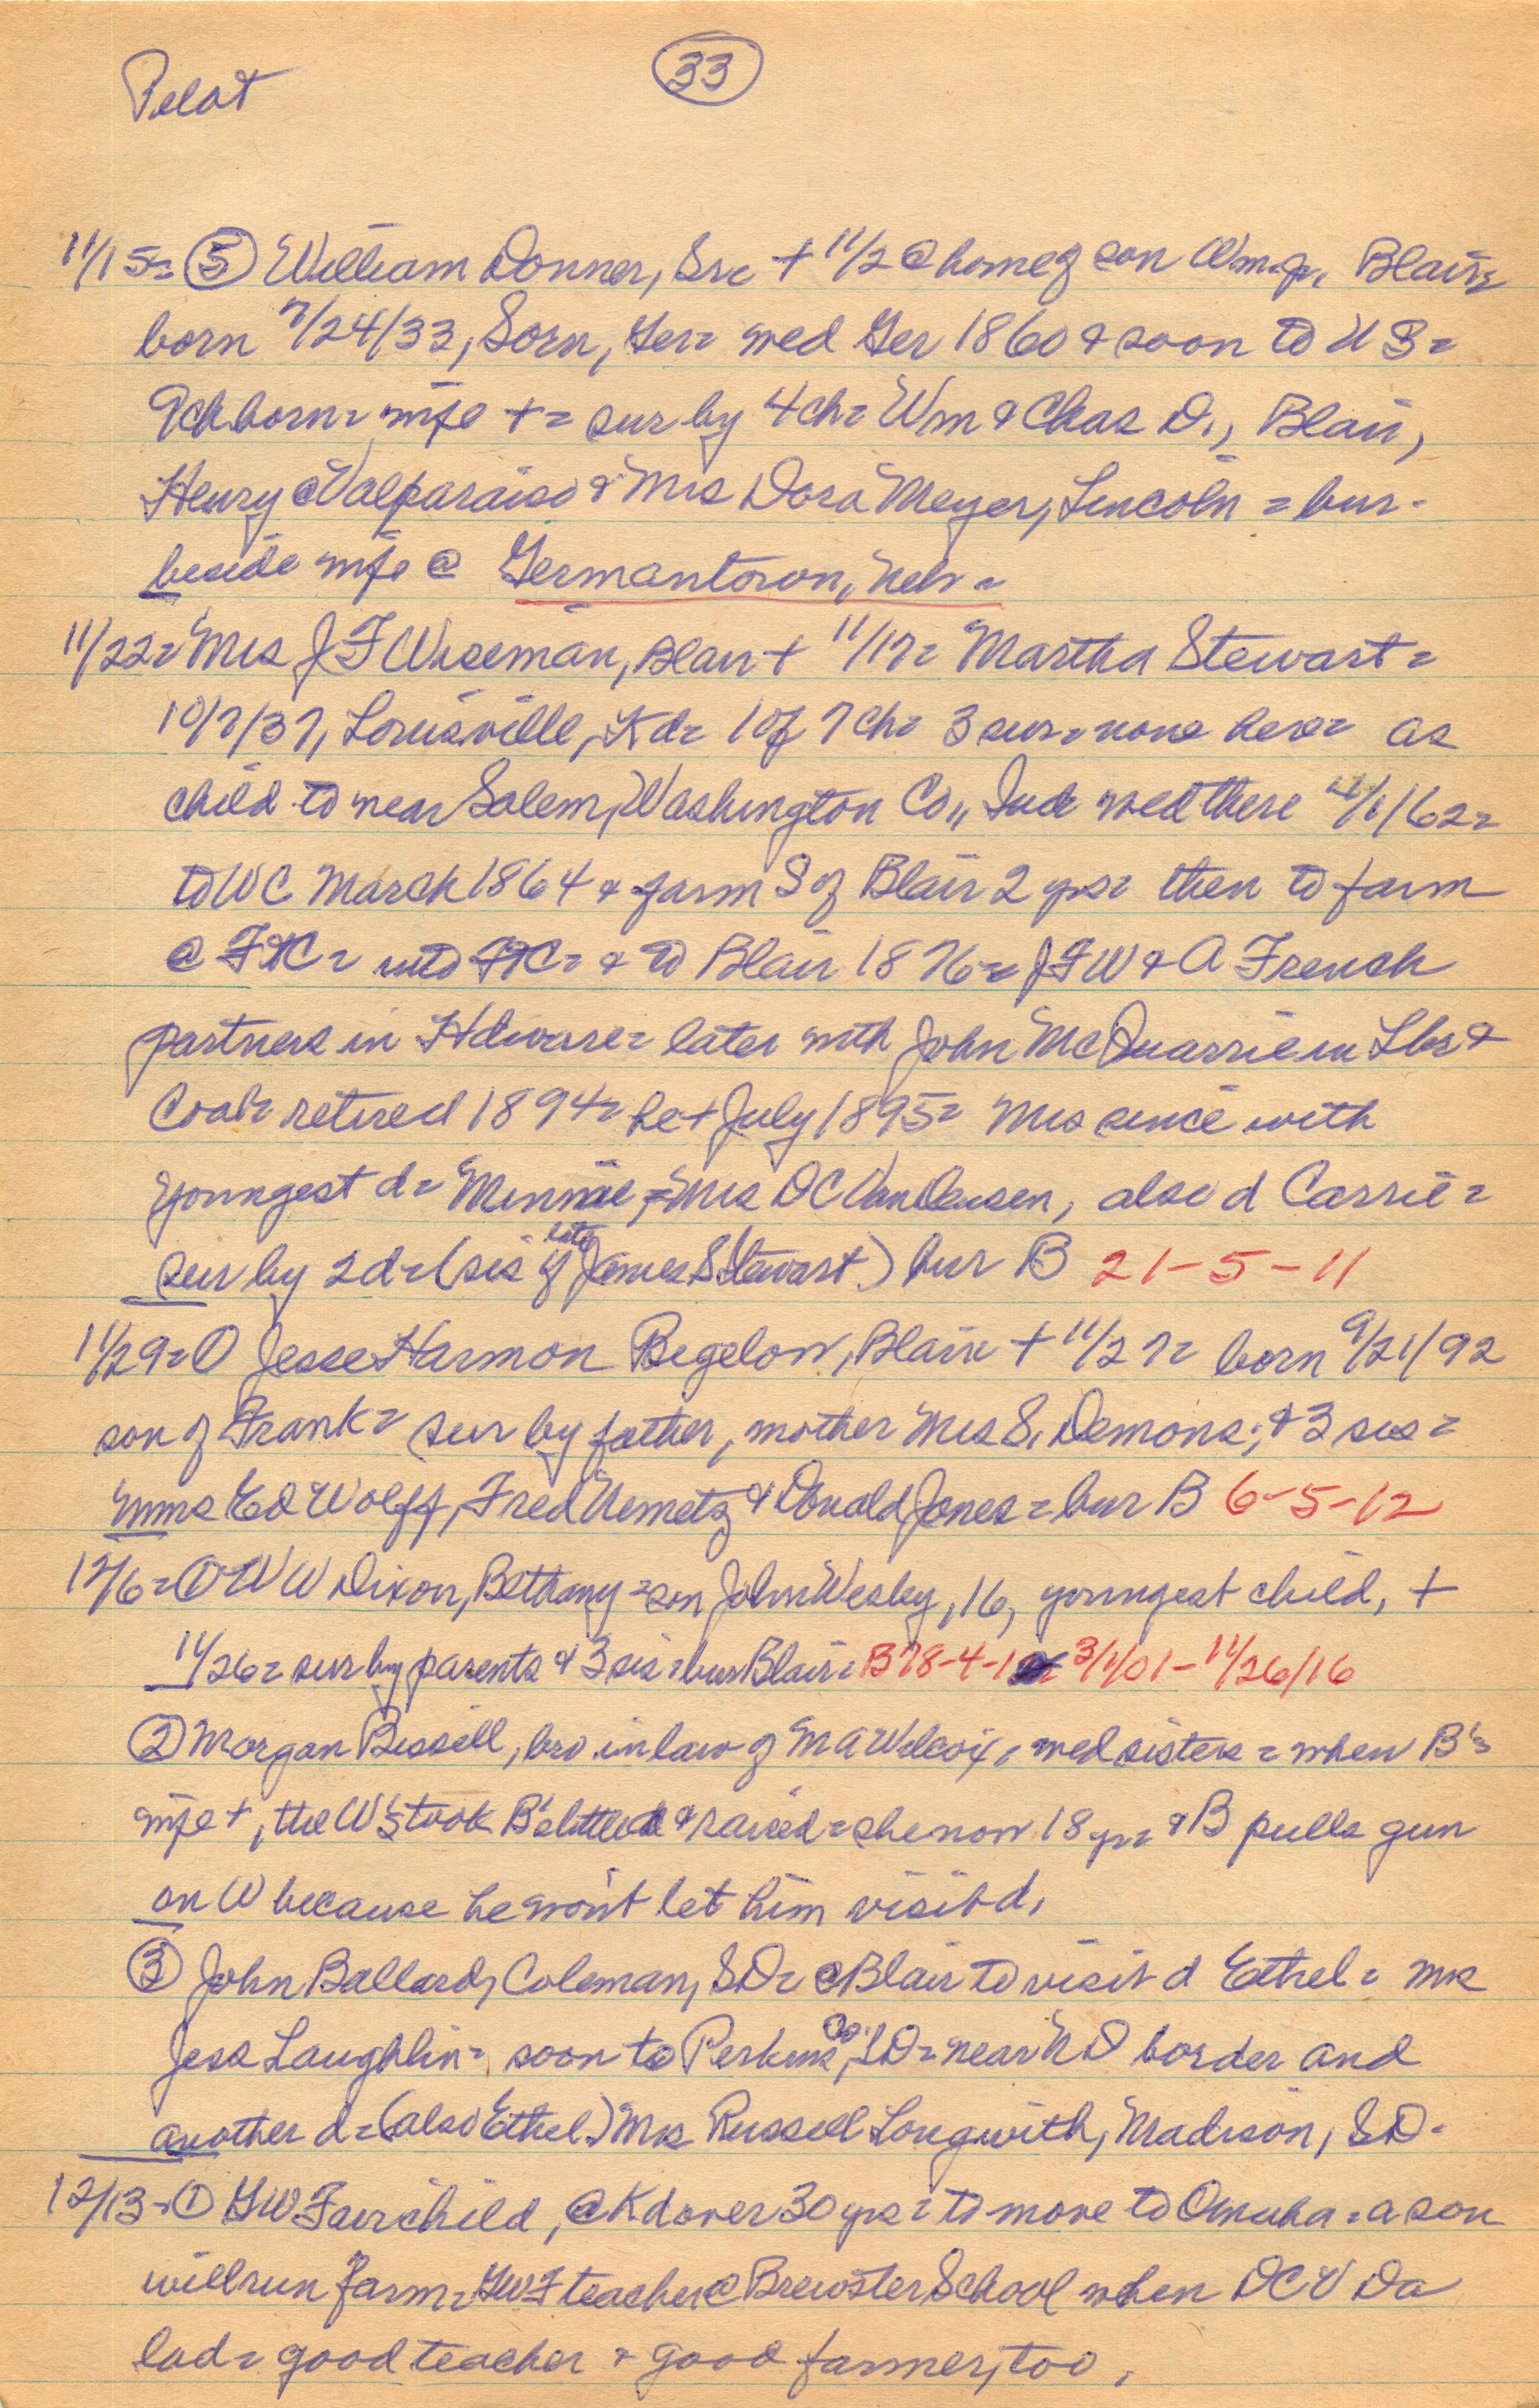 Pilot
33
11/15= ⑤ William Donner, Sr. + 11/2 @ home of son Wm. Jr., Blair=
born 7/24/33, Sorn, Ger= wed Ger 1860 & soon to U S=
9 ch born= wife += sur by 4 ch= Wm & Chas D., Blair,
Henry @ Valparaiso & Mrs Dora Meyer, Lincoln = bur-
beside wife @ Germantown, Neb=
11/22= Mrs J F Wiseman, Blair + 11/17= Martha Stewart=
10/7/37, Louisville, Kd= 1 of 7 ch= 3 sur= none here= as
child to near Salem, Washington Co., Ind= wed there 4/1/62=
to WC March 1864 & farm S of Blair 2 yrs= then to farm
@ FtC= into FtC= & to Blair 1876= JFW & A French
partners in Hdware= later with John McQuarrie in Lbs &
Coal= retired 1894= he + July 1895= Mrs since with
youngest d= Minnie,= Mrs D C VanDeusen, also d Carrie=
sur by 2 d= (sis of late James S Stewart) bur B 21-5-11
11/29= ① Jesse Harmon Bigelow, Blair= + 11/27= born 9/21/92
son of Frank= sur by father, mother Mrs S. Demons; & 3 sis=
Mms Ed Wolff, Fred Nemetz & Donald Jones= bur B 6-5-12
12/6= ① W W Dixon, Bethany= son John Wesley, 16, youngest child, +
11/26= sur by parents & 3 sis= bur Blair= B 78-4-1 3/1/01-11/26/16
② Morgan Bissell, bro in law of M A Wilcox, wed sisters= when B's
wife +, the W's took B's little d & raised= she now 18 yr= & B pulls gun
on W because he won't let him visit d.
③ John Ballard, Coleman, SD= @ Blair to visit d Ethel= Mrs
Jess Laughlin= soon to Perkins Co., SD= near N D border and
another d= (also Ethel) Mrs Russell Longwith, Madison, SD-
12/13= ① GW Fairchild, @ Kd over 30 yrs= to move to Omaha= a son
will run farm= GWF teacher @ Brewster School when DCV Da
lad= good teacher & good farmer, too.